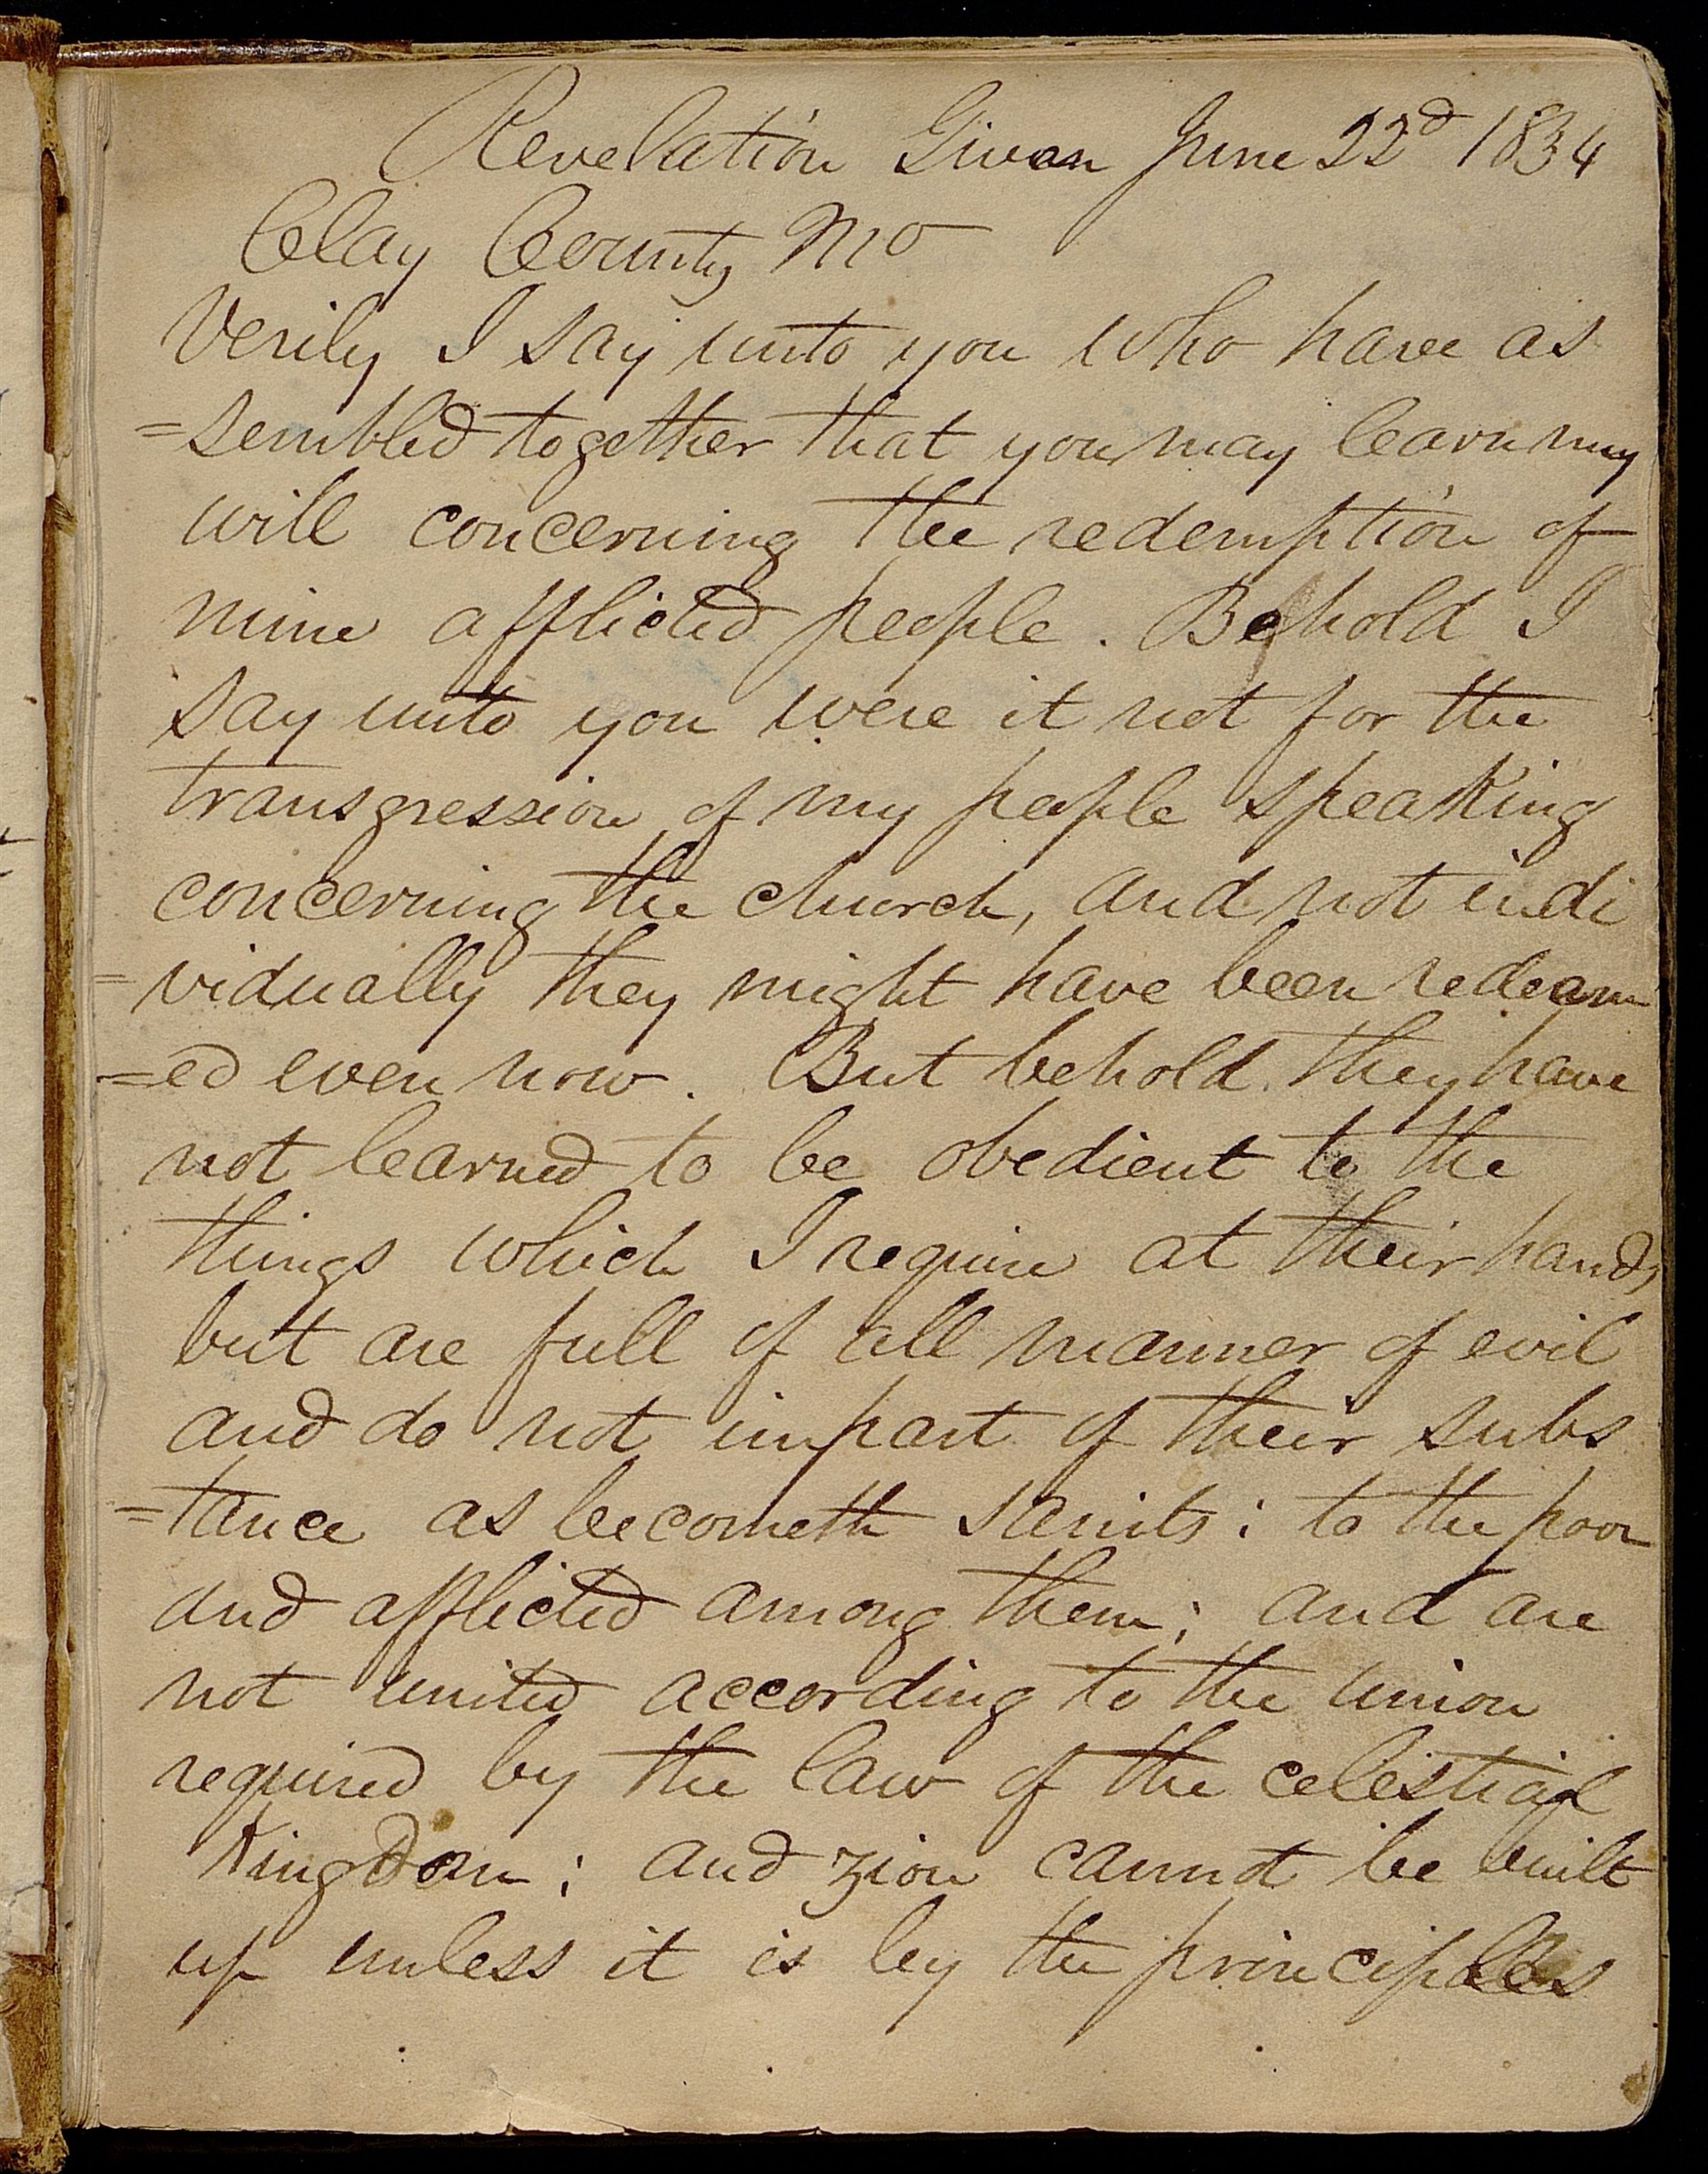 Revelation Given June 22d 1834
Clay County Mo
Verily I say unto you who have as
=sembled together that you may learn my
will concerning the redemption of
mine afflicted people. Behold I
say unto you were it not for the
transgression of my people speaking
concerning the church, and not indi
=vidually they might have been redeem
=ed even now. But behold they have
not learned to be obedient to the
things which I require at their hands,
but are full of all manner of evil
and do not impart of their subs
=tance as becometh saints; to the poor
and afflicted among them; and are
not united according to the union
required by the law of the celestial
Kingdom; and zion cannot be built
up unless it is by the principles